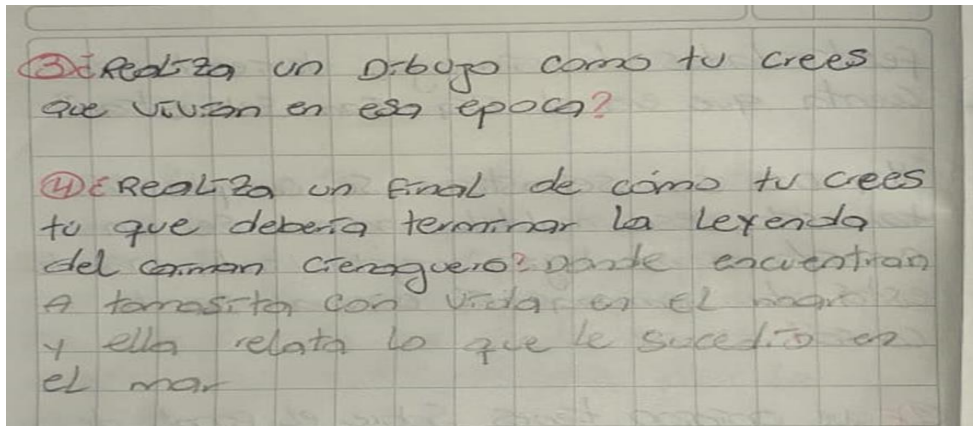 ③¿Realiza un Dibujo como tu crees
que vivian en esa epoca?
④¿Realiza un final de cómo tu crees
tu que deberia terminar la leyenda
del caiman cienaguero? Donde encuentran
A tomasita con vida en el mar
y ella relata lo que le sucedio en
el mar